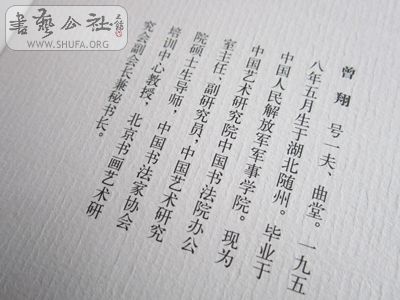 書藝公社
WWW.SHUFA.ORG
曾翔 号一夫、曲堂。一九五
八年五月生于湖北随州。毕业于
中国人民解放军军事学院。现为
中国艺术研究院中国书法院办公
室主任、副研究员，中国艺术研究
院硕士生导师，中国书法家协会
培训中心教授，北京书画艺术研
究会副会长兼秘书长。